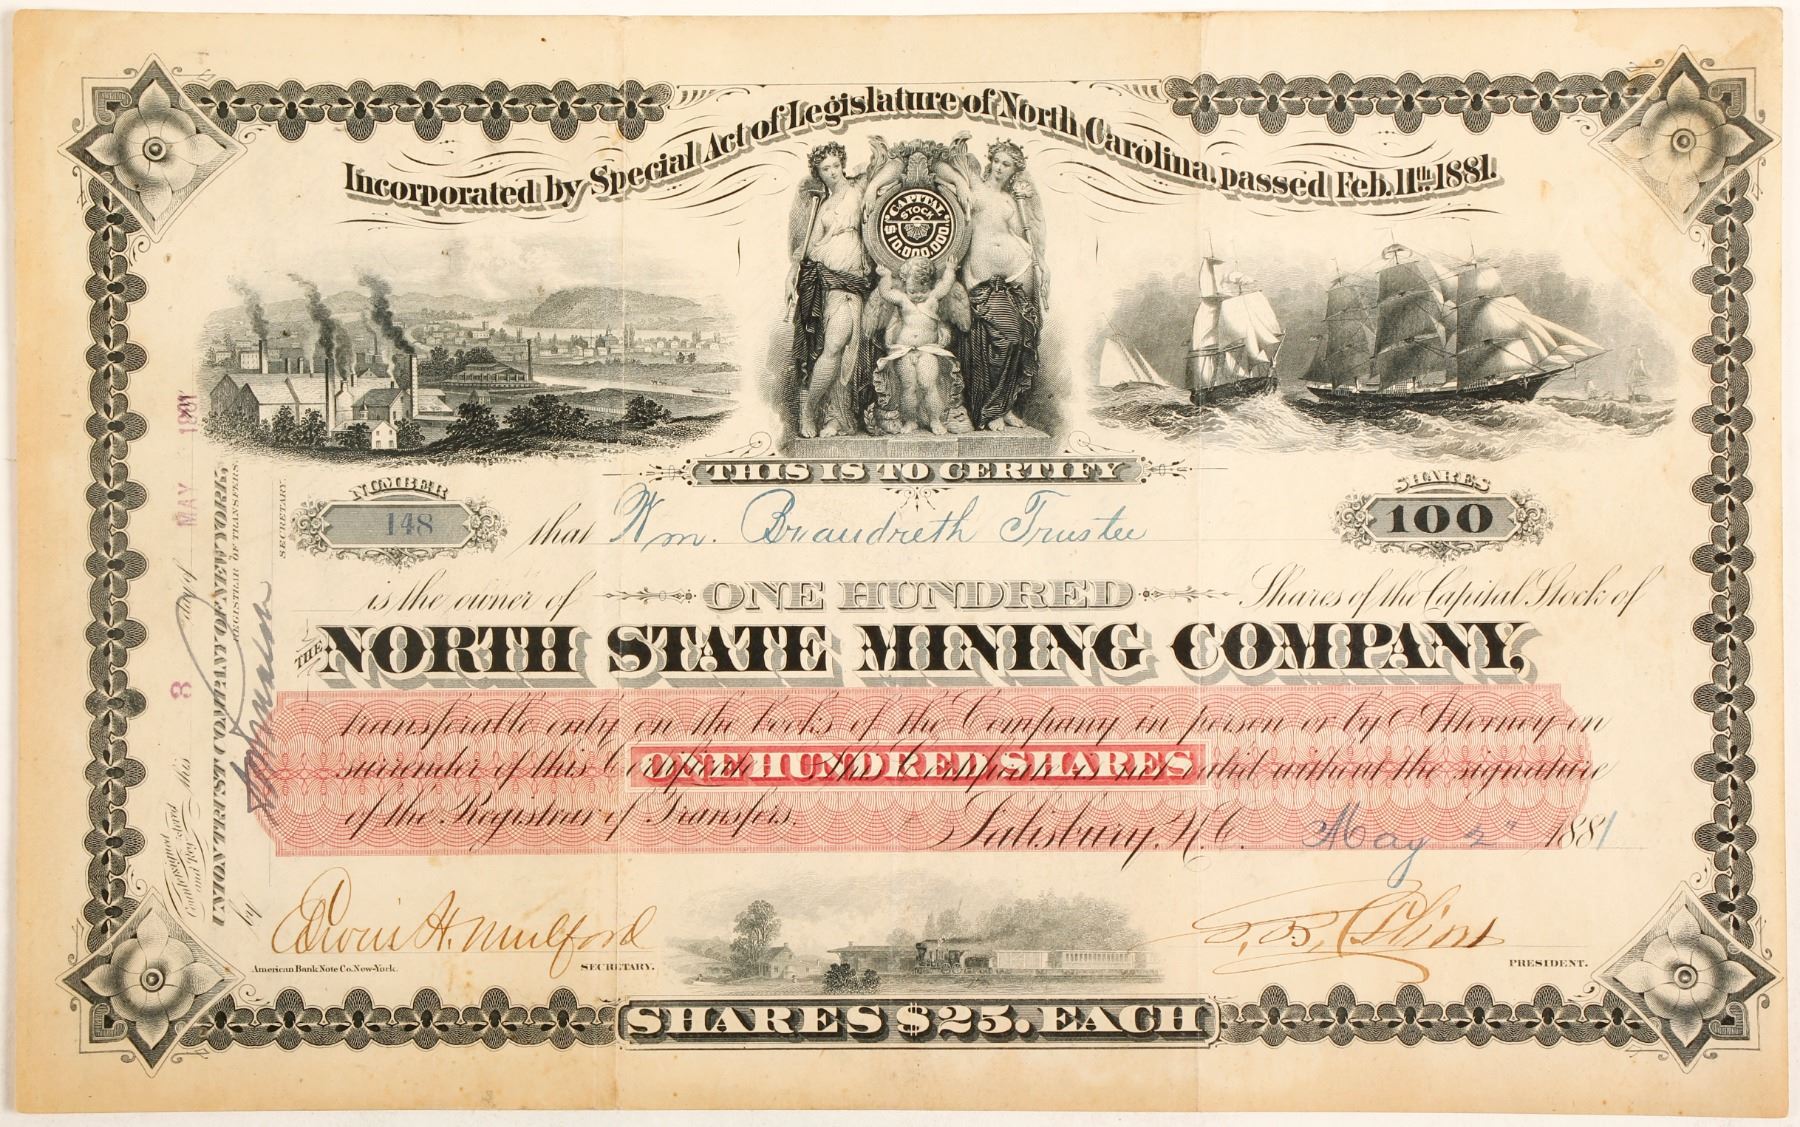 Incorporated by Special Act of Legislature of North Carolina, passed Feb. 11th 1881.
CAPITAL
STOCK
$10,000,000.
THIS IS TO CERTIFY
NUMBER
148
SHARES
100
that Wm. Brandreth Trustee
is the owner of ONE HUNDRED Shares of the Capital Stock of
THE NORTH STATE MINING COMPANY,
transferable only on the books of the Company in person or by Attorney on
surrender of this Certificate. This Certificate is not valid without the signature
of the Registrar of Transfers.
ONE HUNDRED SHARES
Salisbury, N.C. May 2" 1881
Edwin H. Mulford
SECRETARY.
PRESIDENT.
American Bank Note Co. New-York.
SHARES $25. EACH
Countersigned
and Registered this 3 day of MAY 1881
UNION TRUST COMPANY OF NEW YORK,
REGISTRAR OF TRANSFERS.
by
SECRETARY.